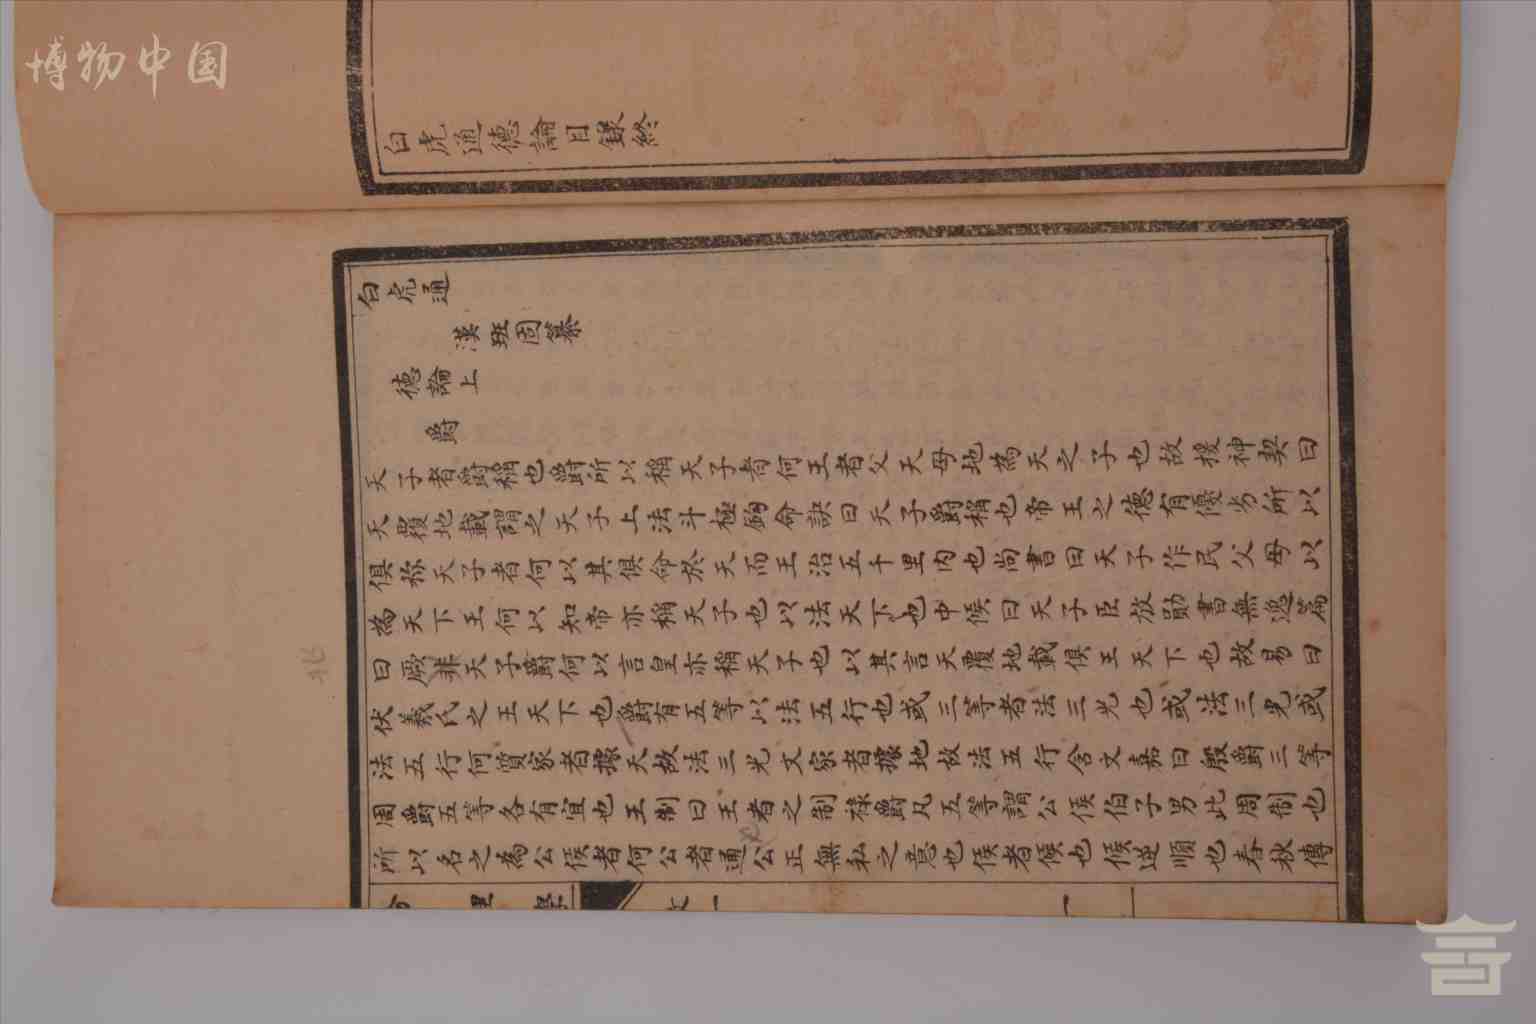 博物中国
白虎通德論目錄終
白虎通
漢班固纂
德論上
爵
天子者爵稱也爵所以稱天子者何王者父天母地為天之子也故援神契曰
天覆地載謂之天子上法斗極鉤命訣曰天子爵稱也帝王之德有優劣所以
俱称天子者何以其俱命於天而王治五千里內也尚書曰天子作民父母以
為天下王何以知帝亦稱天子也以法天下也中候曰天子臣放勛書無逸篇
曰厥兆天子爵何以言皇亦稱天子也以其言天覆地載俱王天下也故易曰
伏羲氏之王天下也爵有五等以法五行也或三等者法三光也或法三光或
法五行何質家者據天故法三光文家者據地故法五行含文嘉曰殷爵三等
周爵五等各有宜也王制曰王者之制祿爵凡五等謂公侯伯子男此周制也
所以名之為公侯者何公者通公正無私之意也侯者候也候逆順也春秋傳